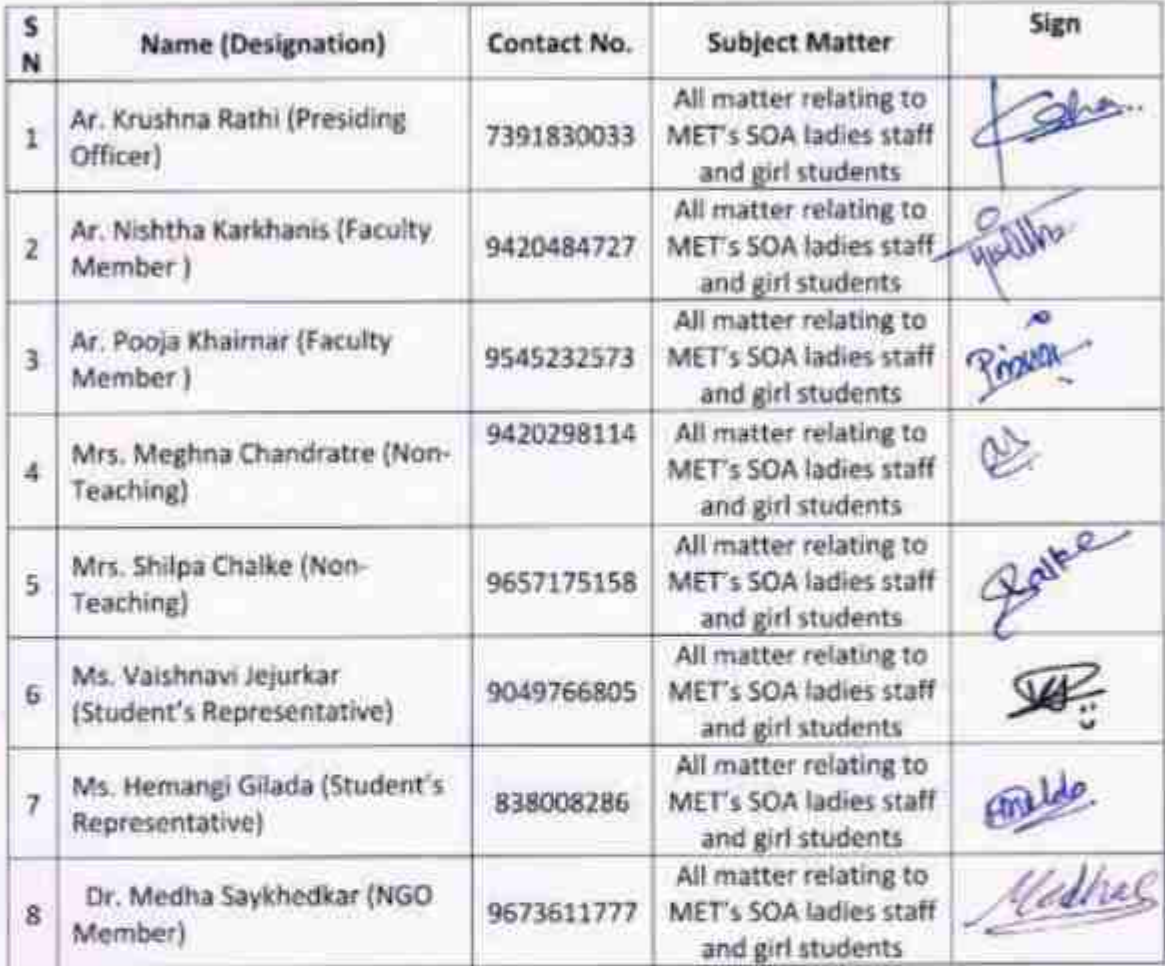 S N Name (Designation) Contact No. Subject Matter Sign
1 Ar. Krushna Rathi (Presiding Officer) 7391830033 All matter relating to MET's SOA ladies staff and girl students
2 Ar. Nishtha Karkhanis (Faculty Member ) 9420484727 All matter relating to MET's SOA ladies staff and girl students
3 Ar. Pooja Khairnar (Faculty Member ) 9545232573 All matter relating to MET's SOA ladies staff and girl students
4 Mrs. Meghna Chandratre (Non-Teaching) 9420298114 All matter relating to MET's SOA ladies staff and girl students
5 Mrs. Shilpa Chalke (Non-Teaching) 9657175158 All matter relating to MET's SOA ladies staff and girl students
6 Ms. Vaishnavi Jejurkar (Student's Representative) 9049766805 All matter relating to MET's SOA ladies staff and girl students
7 Ms. Hemangi Gilada (Student's Representative) 838008286 All matter relating to MET's SOA ladies staff and girl students
8 Dr. Medha Saykhedkar (NGO Member) 9673611777 All matter relating to MET's SOA ladies staff and girl students Medhas